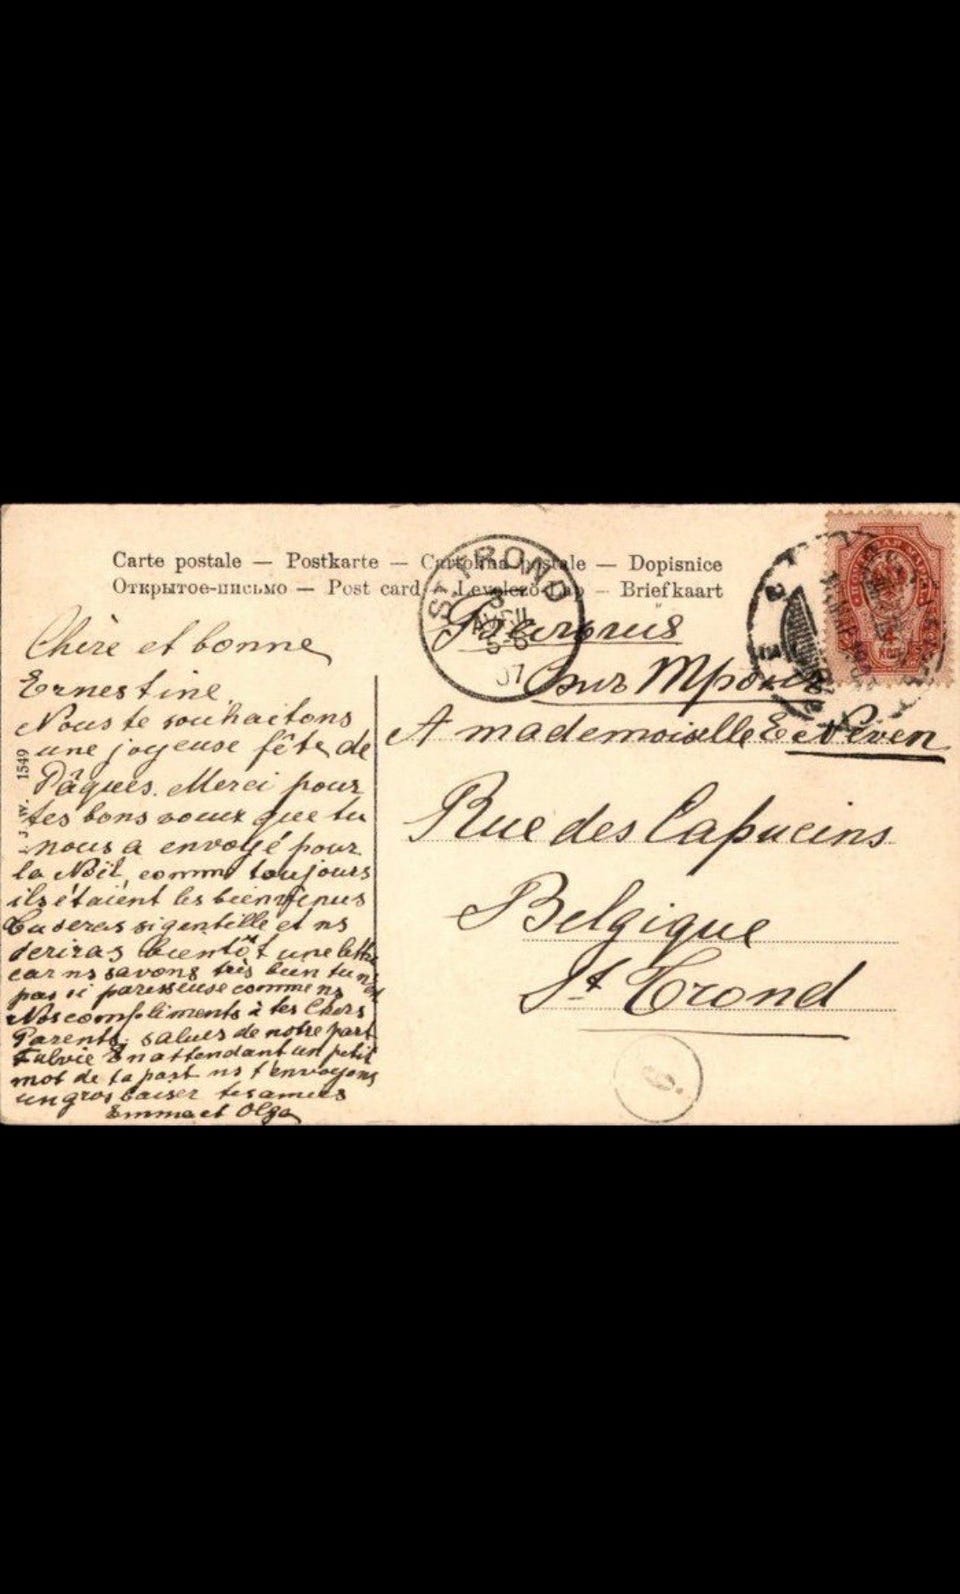 Carte postale — Postkarte — Cartolina postale — Dopisnice
Открытое-письмо — Post card — Levelező-Lap — Briefkaart
ST TROND
07
Сэнъ Тронъ
A mademoiselle E. Neven
Rue des Capucins
Belgique
St Trond
6.
1549
Chère et bonne
Ernestine,
Nous te souhaitons
une joyeuse fête de
Pâques. Merci pour
tes bons voeux que tu
nous a envoyé pour
la Noël, comme toujours
ils étaient les bienvenus
tu seras si gentille et ns
écriras bientôt une lettre
car ns savons très bien tu n'es
pas si paresseuse comme ns
Nos compliments à tes Chers
Parents, salues de notre part
Fulvie En attendant un petit
mot de ta part ns t'envoyons
un gros baiser tes amies
Emma et Olga